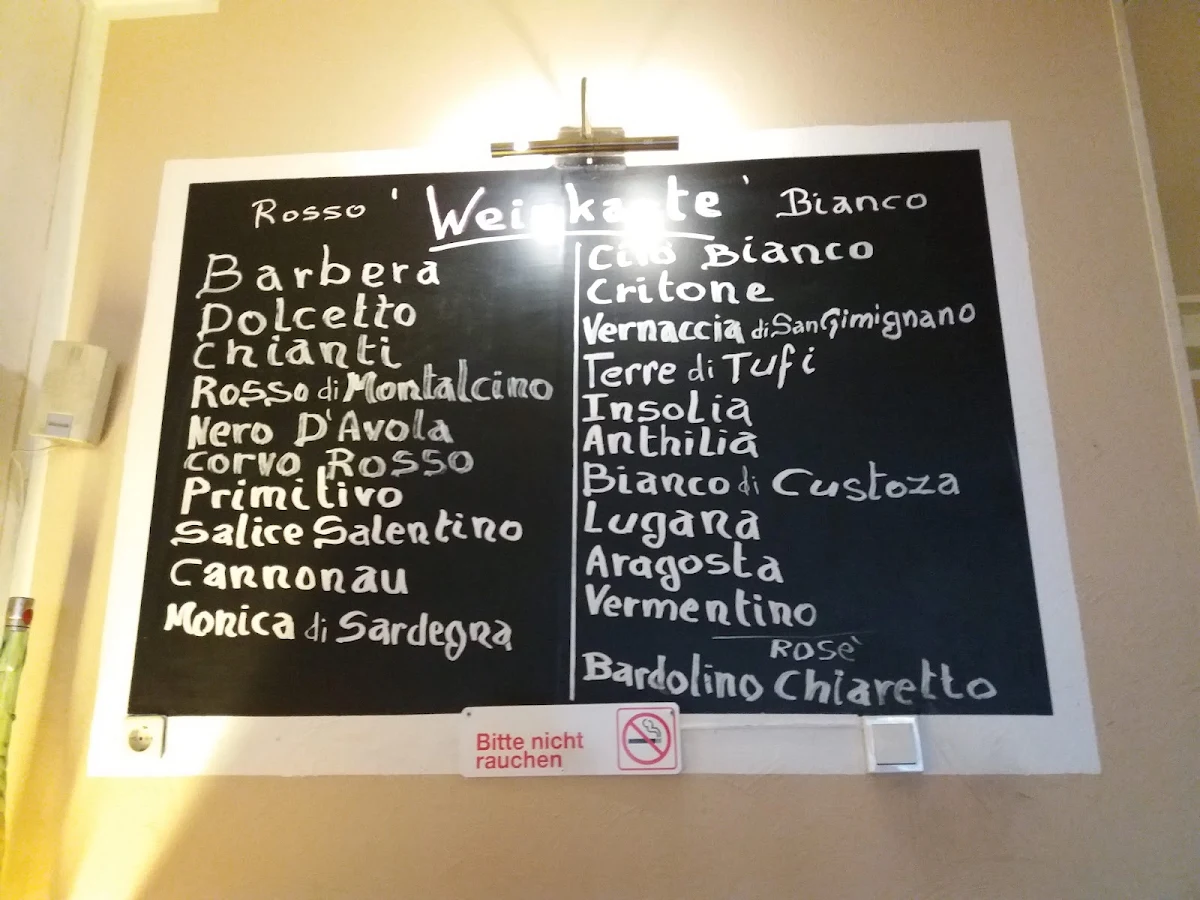 Rosso 'Weinkarte' Bianco
Barbera
Dolcetto
Chianti
Rosso di Montalcino
Nero D'Avola
Corvo Rosso
Primitivo
Salice Salentino
Cannonau
Monica di Sardegna
Bianco
Critone
Vernaccia di San Gimignano
Terre di Tufi
Insolia
Anthilia
Bianco di Custoza
Lugana
Aragosta
Vermentino
Rosè
Bardolino Chiaretto
Bitte nicht
rauchen